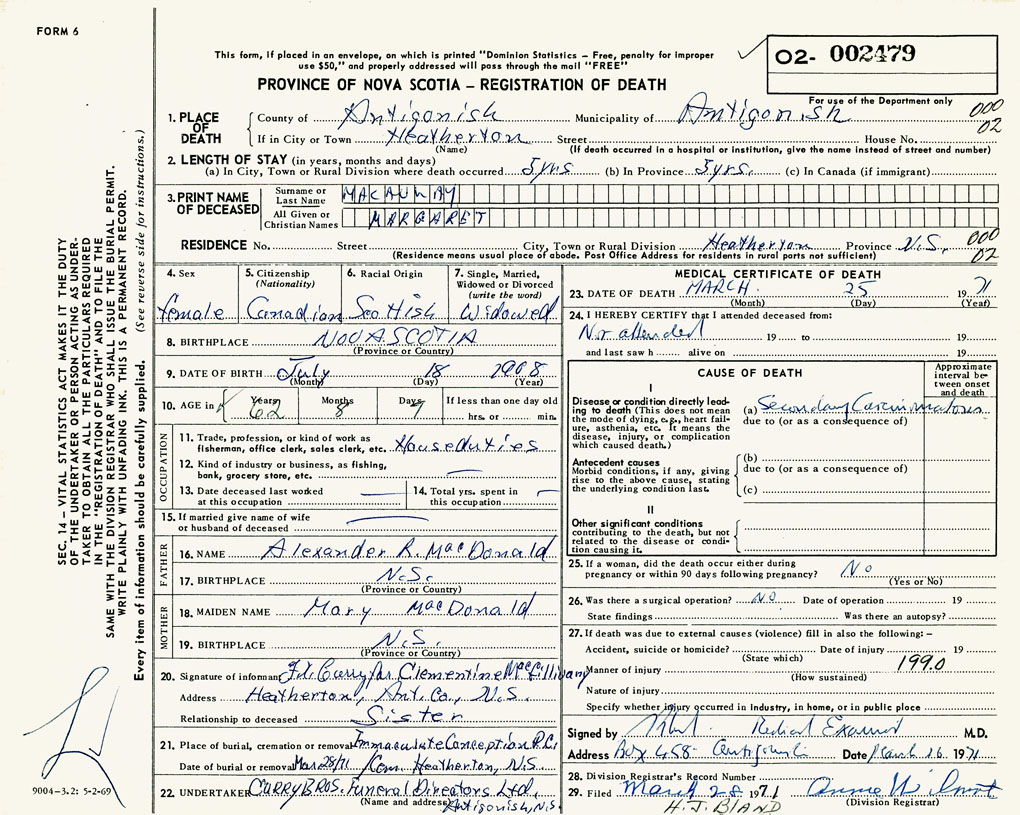 FORM 6
This form, if placed in an envelope, on which is printed "Dominion Statistics – Free, penalty for improper
use $50," and properly addressed will pass through the mail "FREE"
02- 002479
PROVINCE OF NOVA SCOTIA – REGISTRATION OF DEATH
For use of the Department only
000
02
1. PLACE OF DEATH
County of Antigonish Municipality of Antigonish
If in City or Town Heatherton Street House No.
(Name) (If death occurred in a hospital or institution, give the name instead of street and number)
2. LENGTH OF STAY (in years, months and days)
(a) In City, Town or Rural Division where death occurred 5 yrs (b) In Province 5 yrs. (c) In Canada (if immigrant)
3. PRINT NAME OF DECEASED
Surname or Last Name MACAULAY
All Given or Christian Names MARGARET
RESIDENCE No. Street City, Town or Rural Division Heatherton Province N.S.
000
02
(Residence means usual place of abode. Post Office Address for residents in rural parts not sufficient)
4. Sex
female
5. Citizenship
(Nationality)
Canadian
6. Racial Origin
Scottish
7. Single, Married,
Widowed or Divorced
(write the word)
Widowed
8. BIRTHPLACE NOVA SCOTIA
(Province or Country)
9. DATE OF BIRTH July 18 1908
(Month) (Day) (Year)
10. AGE in Years 62 Months 8 Days 7 If less than one day old
hrs. or min.
OCCUPATION
11. Trade, profession, or kind of work as
fisherman, office clerk, sales clerk, etc. Houseduties
12. Kind of industry or business, as fishing,
bank, grocery store, etc.
13. Date deceased last worked
at this occupation
14. Total yrs. spent in
this occupation
15. If married give name of wife
or husband of deceased
FATHER
16. NAME Alexander R. MacDonald
17. BIRTHPLACE N.S.
(Province or Country)
MOTHER
18. MAIDEN NAME Mary MacDonald
19. BIRTHPLACE N.S.
(Province or Country)
20. Signature of informant Curry for Clementine MacGillivary
Address Heatherton, Ant. Co., N.S.
Relationship to deceased Sister
21. Place of burial, cremation or removal Immaculate Conception R.C.
Date of burial or removal Mar 28/71 Cem. Heatherton, N.S.
22. UNDERTAKER CURRY BROS. Funeral Directors Ltd.
(Name and address) Antigonish, N.S.
MEDICAL CERTIFICATE OF DEATH
23. DATE OF DEATH MARCH 25 1971
(Month) (Day) (Year)
24. I HEREBY CERTIFY that I attended deceased from:
Not attended 19 to 19
and last saw h alive on 19
CAUSE OF DEATH
Approximate interval between onset and death
I
Disease or condition directly leading to death (This does not mean the mode of dying, e.g., heart failure, asthenia, etc. It means the disease, injury, or complication which caused death.)
(a) Secondary Carcinomatosis
due to (or as a consequence of)
Antecedent causes
Morbid conditions, if any, giving rise to the above cause, stating the underlying condition last.
(b)
due to (or as a consequence of)
(c)
II
Other significant conditions
contributing to the death, but not related to the disease or condition causing it.
25. If a woman, did the death occur either during
pregnancy or within 90 days following pregnancy? No
(Yes or No)
26. Was there a surgical operation? NO Date of operation 19
State findings Was there an autopsy?
27. If death was due to external causes (violence) fill in also the following: –
Accident, suicide or homicide? Date of injury 19
(State which)
1990
Manner of injury
(How sustained)
Nature of injury
Specify whether injury occurred in industry, in home, or in public place
Signed by Medical Examiner M.D.
Address Box 458 Antigonish Date March 26 1971
28. Division Registrar's Record Number
29. Filed March 28 1971
(Division Registrar)
H.J. BLAND
SEC. 14 – VITAL STATISTICS ACT MAKES IT THE DUTY
OF THE UNDERTAKER OR PERSON ACTING AS UNDER-
TAKER TO OBTAIN ALL THE PARTICULARS REQUIRED
IN THE "REGISTRATION OF DEATH" AND TO FILE THE
SAME WITH THE DIVISION REGISTRAR WHO SHALL ISSUE THE BURIAL PERMIT.
WRITE PLAINLY WITH UNFADING INK. THIS IS A PERMANENT RECORD.
Every item of information should be carefully supplied. (See reverse side for instructions.)
9004-3.2: 5-2-69